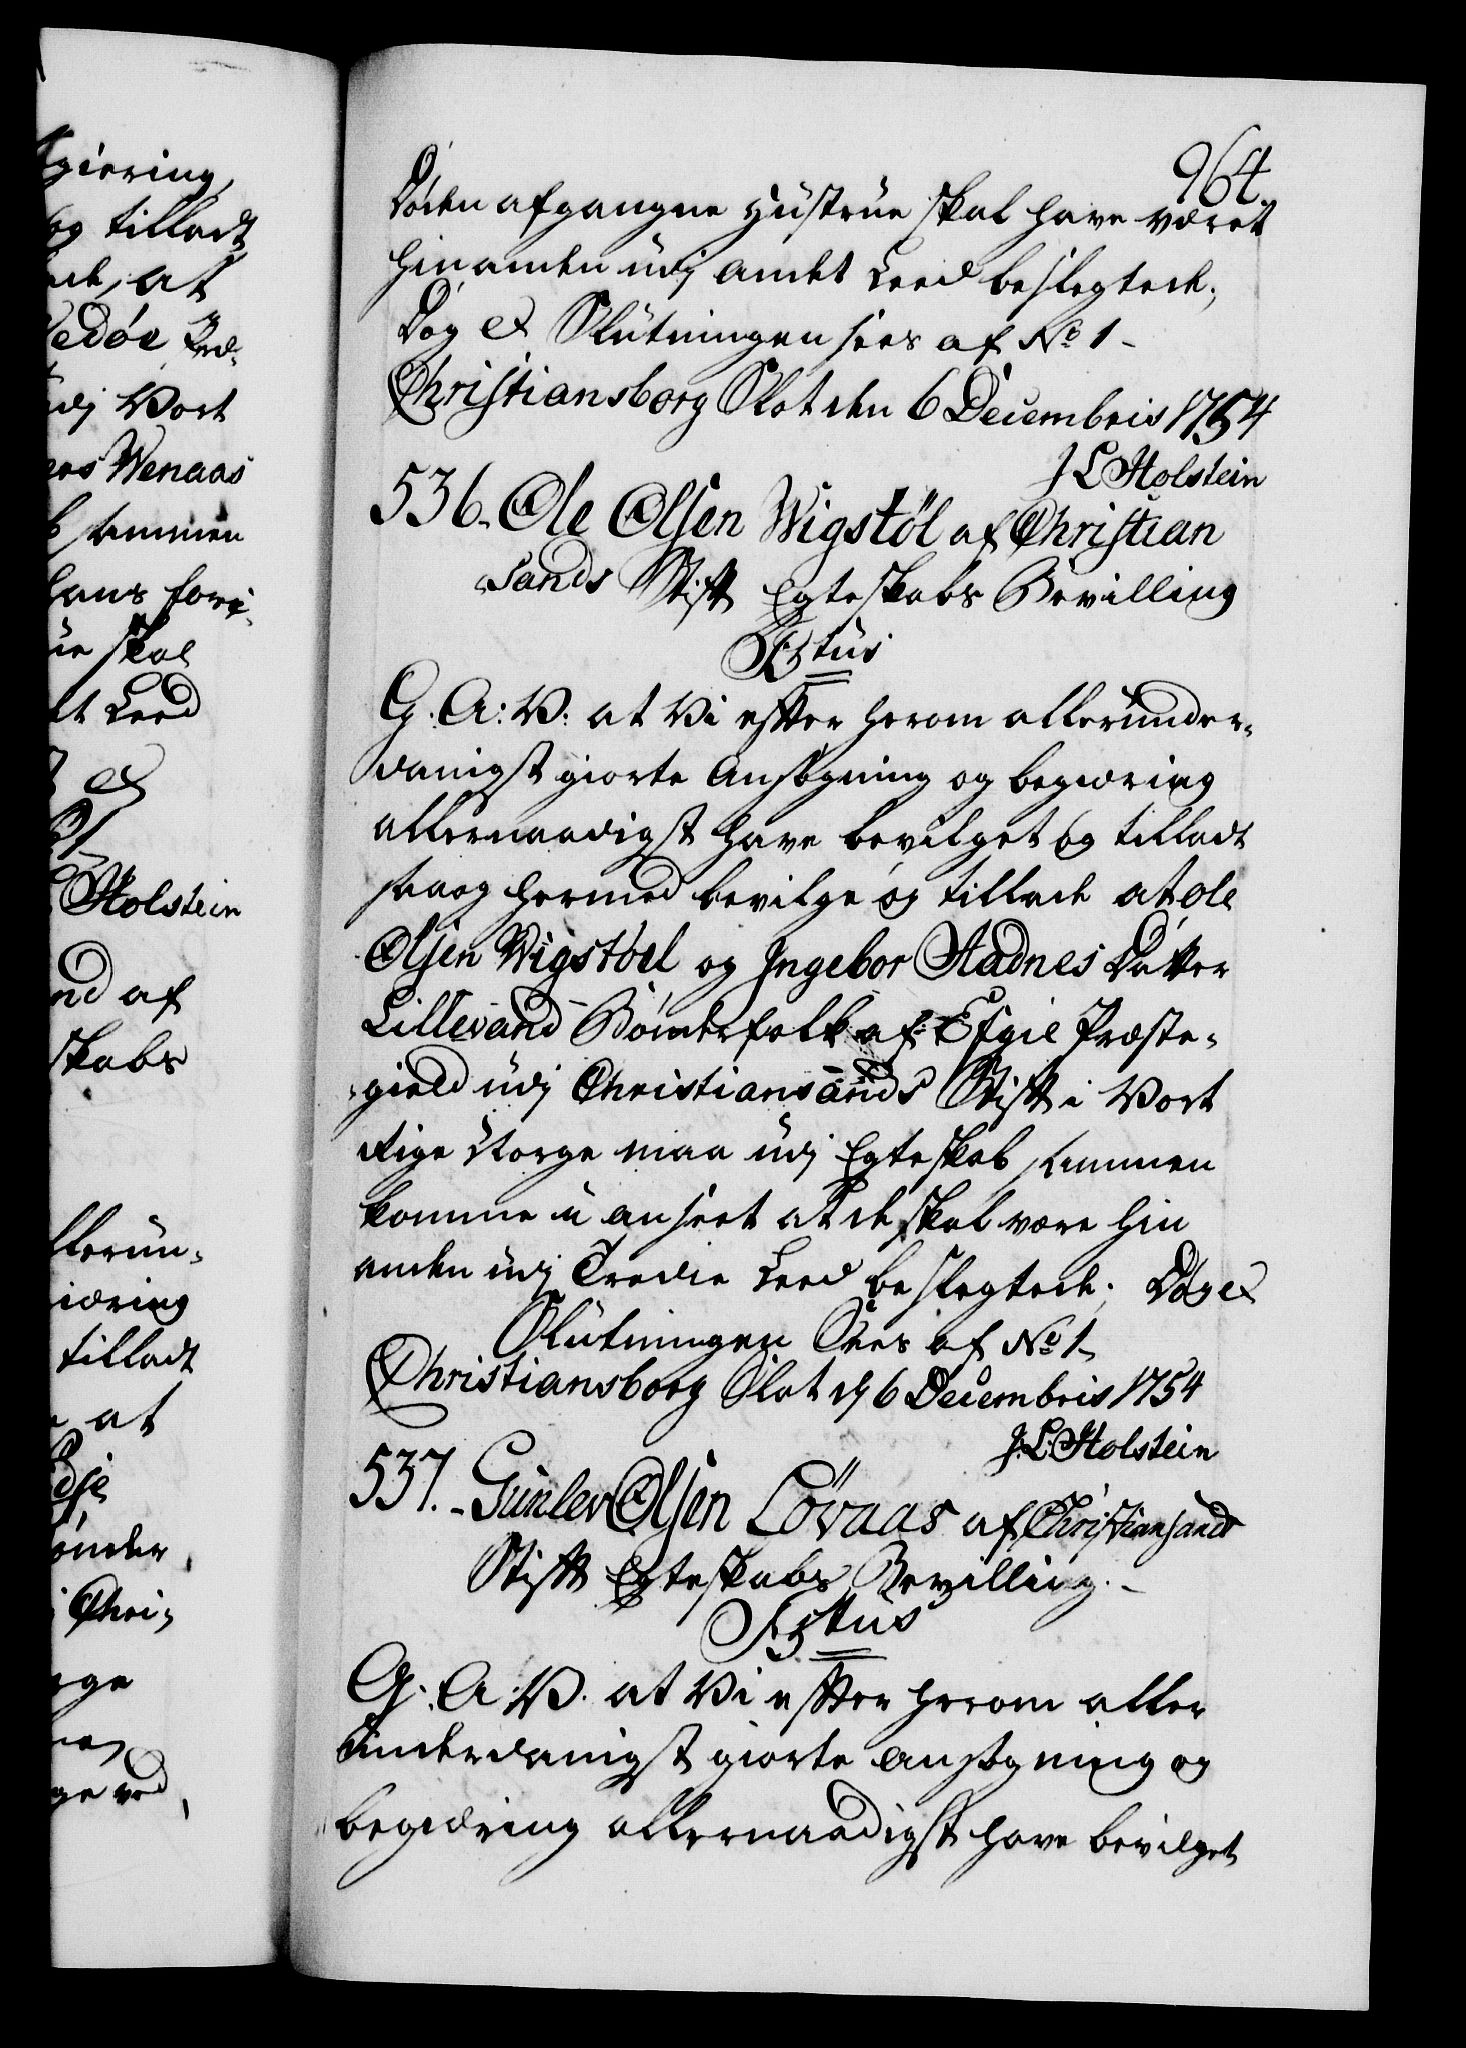 giering
og tilladt
at
Vedøe
udj Vort
Wenaas
sammen
hans forri-
skal
Leed
&
Holstein
af
skabs
llerun-
tilladt
at
ønder
i Chri-
964
Døden afgangne Hustrue skal have været
hinanden udj andet Leed beslegtede;
Dog & Slutningen sees af No 1-
Christiansborg Slot den 6 Decembris 1754
J L Holstein
536. Ole Olsen Wigstøl af Christian
sands Stift Egteskabs Bevilling
G: A: V: at Vi efter herom allerunder-
danigst giorte Ansøgning og begiering
allernaadigst have bevilget og tilladt
saa og hermed bevilge og tillade at Ole
Olsen Wigstøel og Ingebor Stadnes Datter
Lillevand Bønderfolk af Efgie Præste-
gield udj Christiansands Stift i Vort
Rige Norge maa udj Egteskab sammen
komme u anseet at de skal være hin
anden udj Tredie Leed beslegtede; Dog &
Slutningen Sees af No 1-
Christiansborg Slot d 6 Decembris 1754
J: L: Holstein
537. Gunlev Olsen Løvaas af Christiansands
Stift Egteskabs Bevilling.-
G: A: V: at Vi efter herom aller
underdanigst giorte ansøgning og
begiering allernaadigst have bevilget